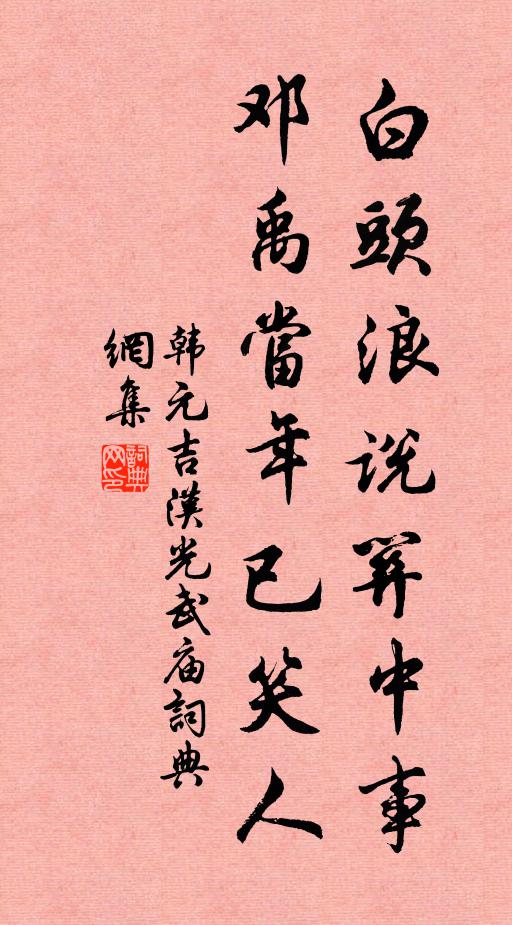 白頭浪説關中事
邓禹當年已笑人
韩元吉漢光武庙詞典
網集
詞典网印